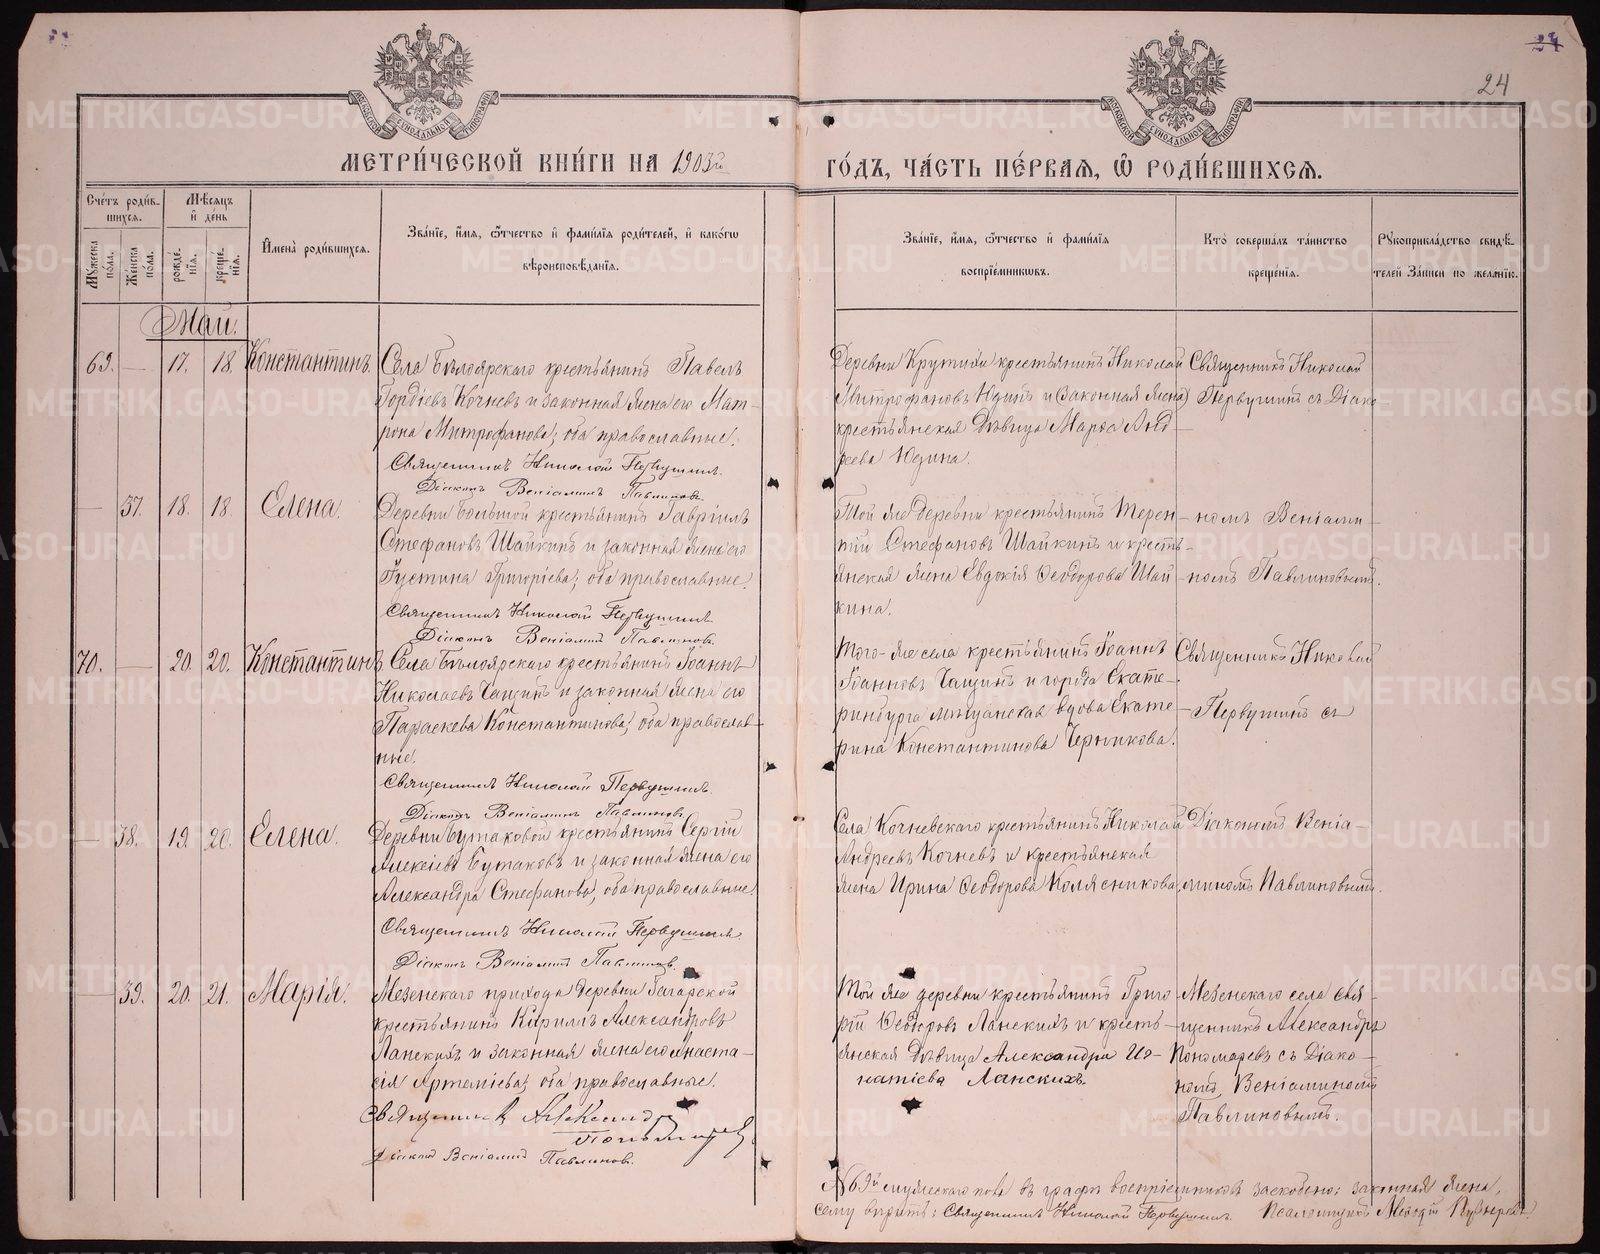 24
24
МОСКОВСКОЙ СѴНОДАЛЬНОЙ ТИПОГРАФІИ
МОСКОВСКОЙ СѴНОДАЛЬНОЙ ТИПОГРАФІИ
МЕТРИ́ЧЕСКОЙ КНИ́ГИ НА 1903й
ГО́ДЪ, ЧА́СТЬ ПЕ́РВАЯ, Ѽ РОДИ́ВШИХСЯ.
Сче́тъ роди́в-
шихся.
Мѣ́сяцъ
и҆ де́нь
Мꙋ́жеска по́ла.
Же́нска по́ла.
рожде́-
нїѧ.
креще́-
нїѧ.
И҆мена̀ роди́вшихсѧ.
Зва́нїе, и҆́мѧ, ѻ҆́тчество и҆ фами́лїѧ роди́телей, и҆ како́гѡ
вѣроисповѣ́данїѧ.
Зва́нїе, и҆́мѧ, ѻ҆́тчество и҆ фами́лїѧ
воспрїе́мникѡвъ.
Кто̀ соверша́лъ та́инство
креще́нїѧ.
Рꙋкоприкла́дство свидѣ́-
телей За́писи по жела́нїю.
Май.
69. — 17. 18. Константинъ.
Села Бѣлоярскаго крестьянинъ Павелъ
Гордіевъ Кочневъ и законная жена его Мат-
рона Митрофанова; оба православные.
Священникъ Николай Первушинъ.
Діаконъ Веніаминъ Павлиновъ.
Деревни Крутихи крестьянинъ Николай
Митрофановъ Юдинъ и (законная жена)
крестьянская дѣвица Марѳа Анд-
реева Юдина.
Священникъ Николай
Первушинъ съ Діако-
— 37. 18. 18. Елена.
Деревни Большой крестьянинъ Гавріилъ
Стефановъ Шайкинъ и законная жена его
Іустина Григоріева; оба православные.
Священникъ Николай Первушинъ.
Діаконъ Веніаминъ Павлиновъ.
Той же деревни крестьянинъ Терен-
тій Стефановъ Шайкинъ и кресть-
янская жена Евдокія Ѳеодорова Шай-
кина.
номъ Веніами-
номъ Павлиновымъ.
70. — 20. 20. Константинъ
Села Бѣлоярскаго крестьянинъ Іоаннъ
Николаевъ Чащинъ и законная жена его
Параскева Константинова; оба православ-
ные.
Священникъ Николай Первушинъ.
Діаконъ Веніаминъ Павлиновъ.
Того-же села крестьянинъ Іоаннъ
Іоанновъ Чащинъ и города Екате-
ринбурга мѣщанская вдова Екате-
рина Константинова Черникова.
Священникъ Николай
Первушинъ съ
— 38. 19. 20. Елена.
Деревни Бутаковой крестьянинъ Сергій
Алексіевъ Бутаковъ и законная жена его
Александра Стефанова; оба православные.
Священникъ Николай Первушинъ.
Діаконъ Веніаминъ Павлиновъ.
Села Кочневскаго крестьянинъ Николай
Андреевъ Кочневъ и крестьянская
жена Ирина Ѳеодорова Колясникова.
Діакономъ Веніа-
миномъ Павлиновымъ.
— 39. 20. 21. Марія.
Мезенскаго прихода деревни Гагарской
крестьянинъ Кириллъ Александровъ
Ланскихъ и законная жена его Анаста-
сія Артеміева; оба православные.
Священникъ Александръ
Пономаревъ
Діаконъ Веніаминъ Павлиновъ.
Той же деревни крестьянинъ Григо-
рій Ѳеодоровъ Ланскихъ и кресть-
янская дѣвица Александра Иг-
натіева Ланскихъ.
Мезенскаго села свя-
щенникъ Александръ
Пономаревъ съ Діако-
номъ Веніаминомъ
Павлиновымъ.
№ 69й мужескаго пола въ графѣ воспріемниковъ заскоблено: законная жена,
сему вѣрить: Священникъ Николай Первушинъ. Псаломщикъ Меѳодій